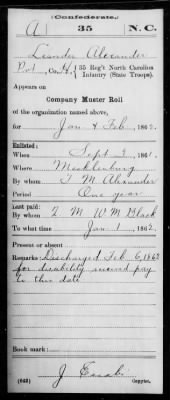 (Confederate.)
A 35 N.C.
Alexander
Pvt, Co. 35 Reg't North Carolina
Infantry (State Troops).
Appears on
Company Muster Roll
of the organization named above,
for Jan & Feb, 1862.
Enlisted:
When Sept 3, 1861.
Where Mecklenburg
By whom M Alexander
Period One year
Last paid:
By whom 2 M W M Black
To what time Jan 1, 1862.
Present or absent
Remarks: Discharged Feb 6, 1862
for disability received pay
to this date
Book mark:
J
(642) Copyist.